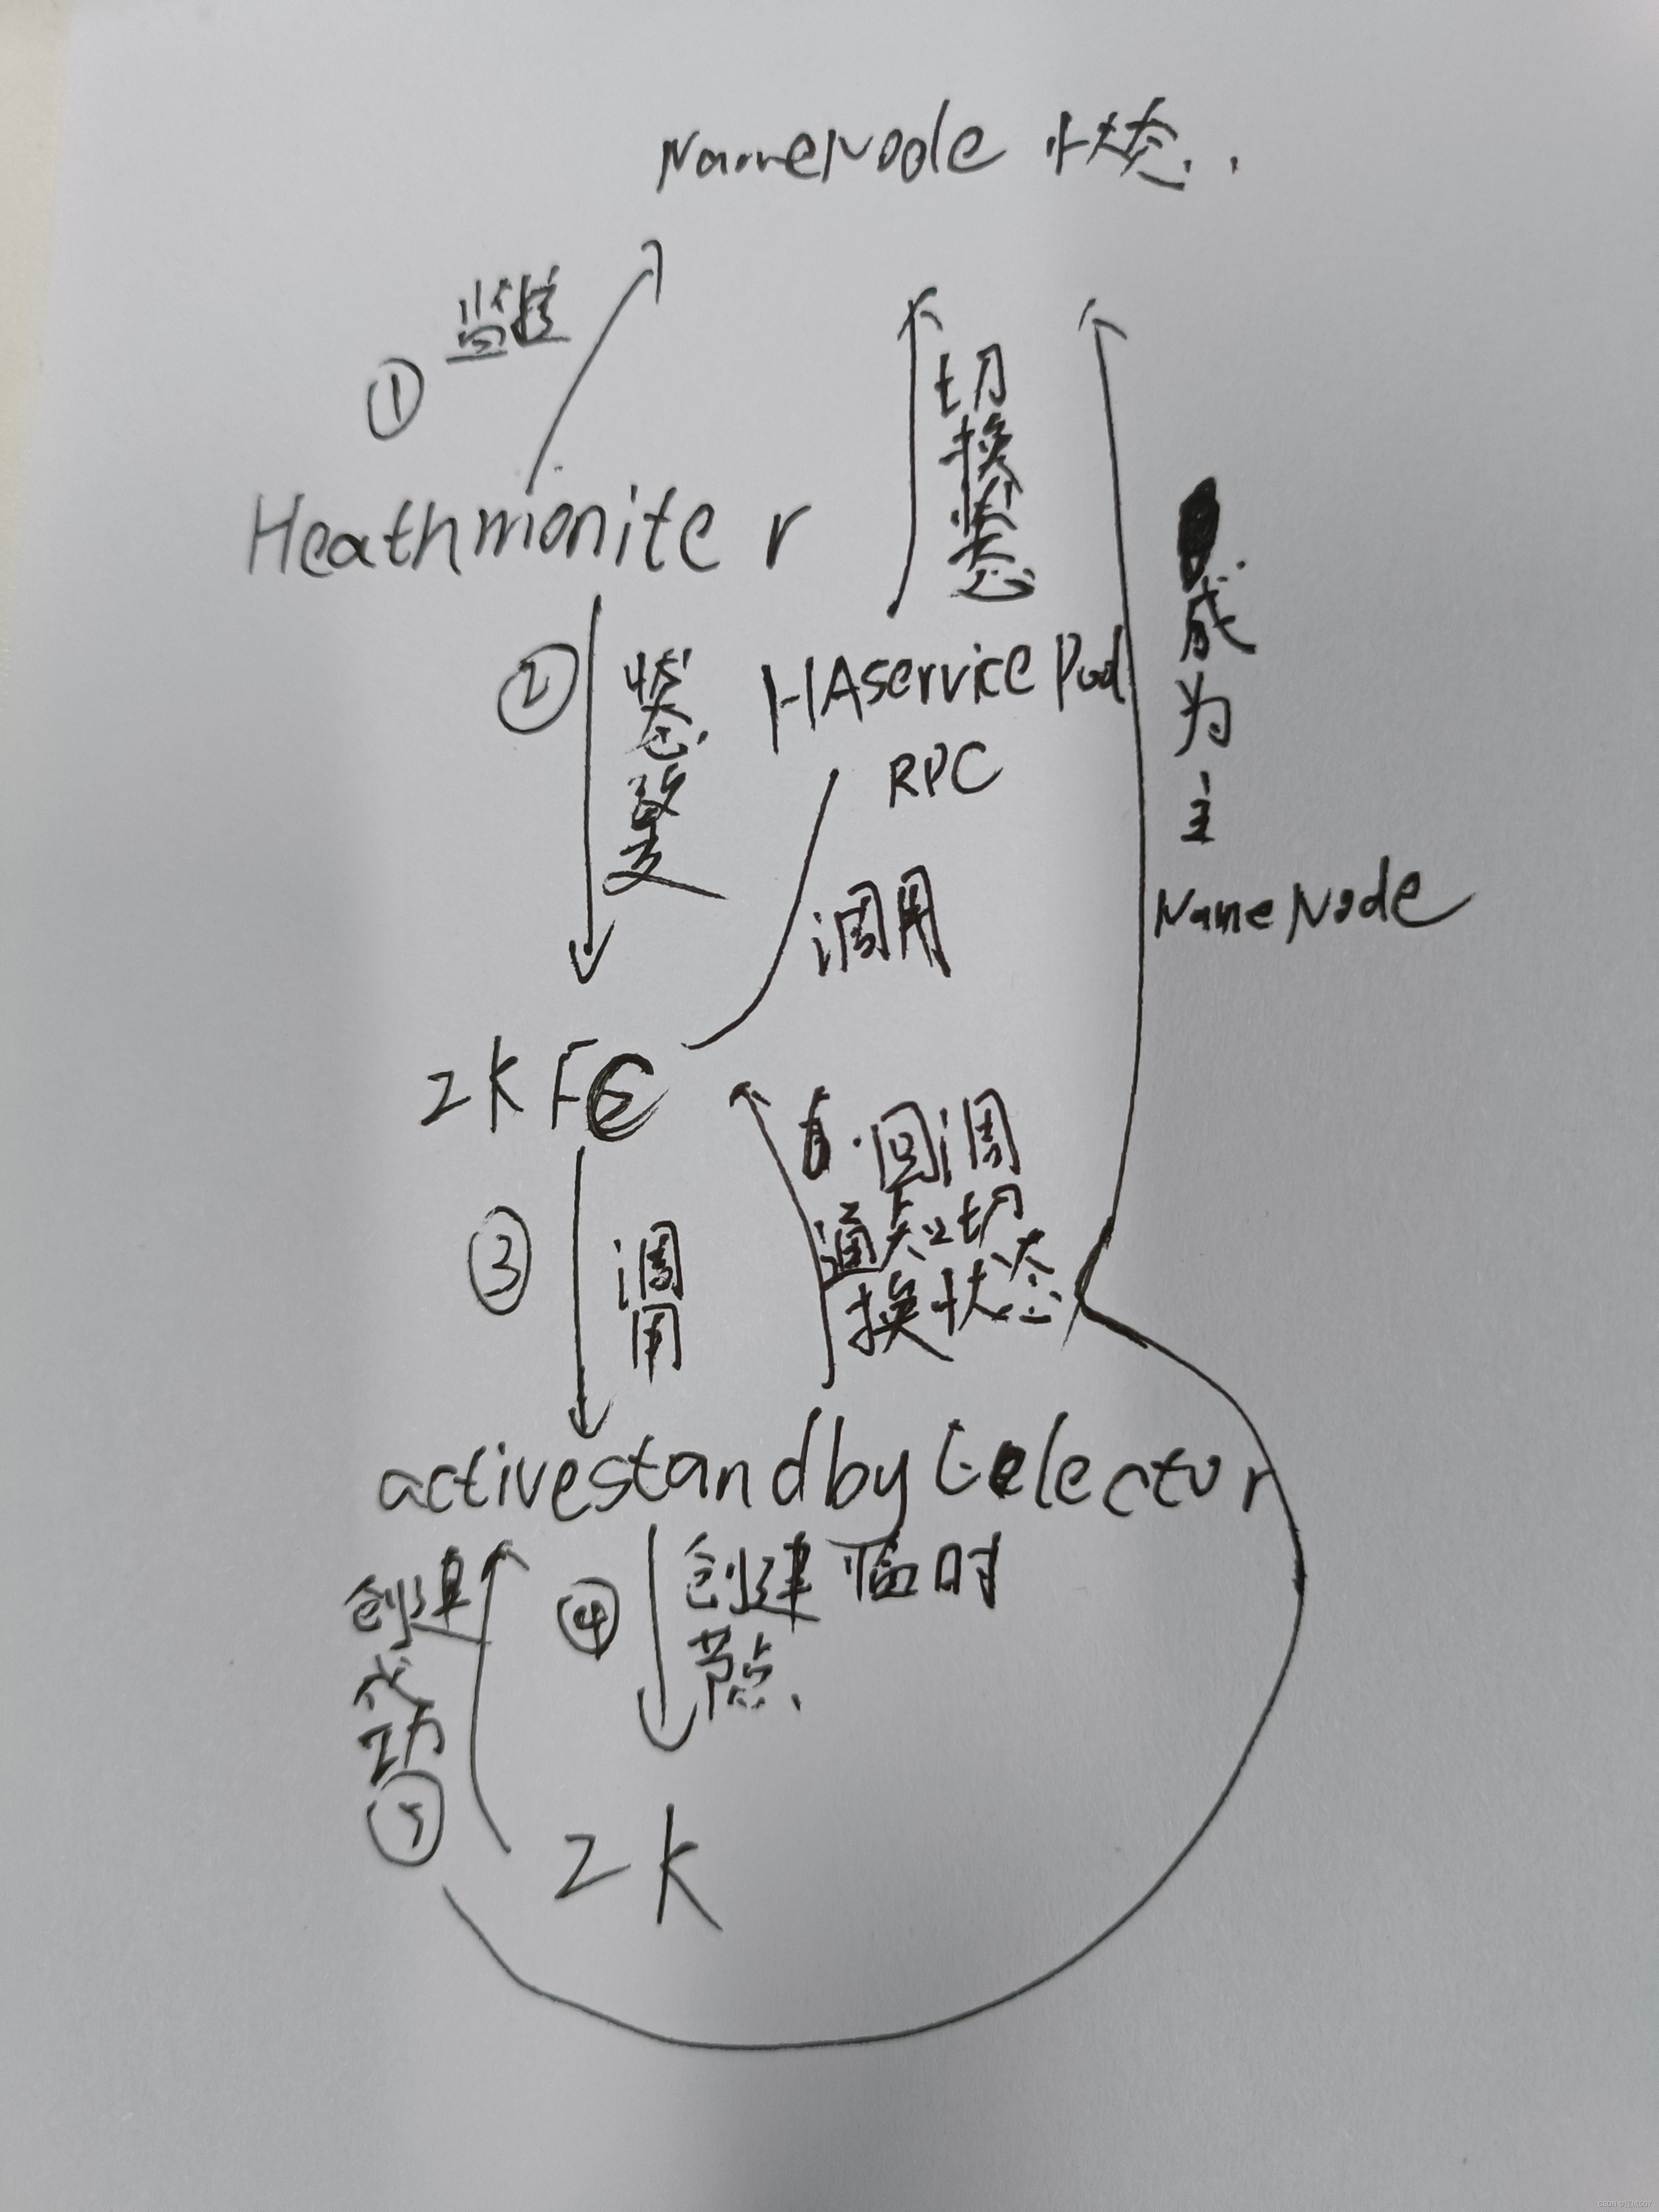 NameNode 状态
① 监控
切换状态
Heathmoniter
② 状态改变
HAservice Pod
RPC
成为主
NameNode
调用
ZKFC
回调
通知切
换状态
③ 调用
activestandbyEelector
④ 创建临时
节点
创建成功
⑤
ZK
CSDN